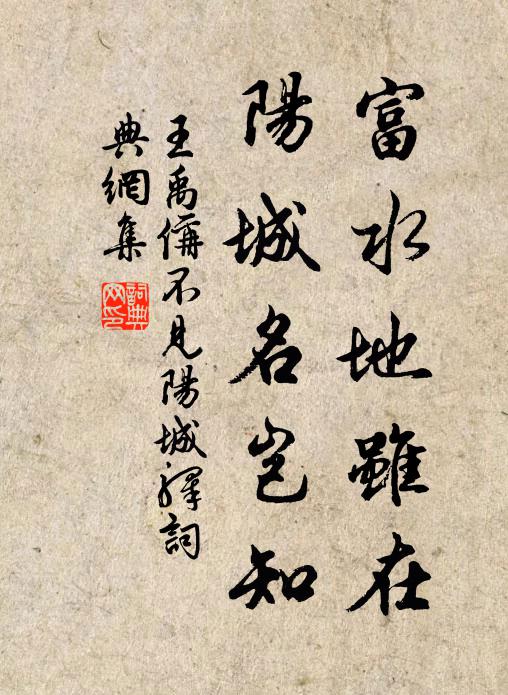 富水地雖在
陽城名豈知
王禹偁不見陽城驛詞
典網集
詞典網印